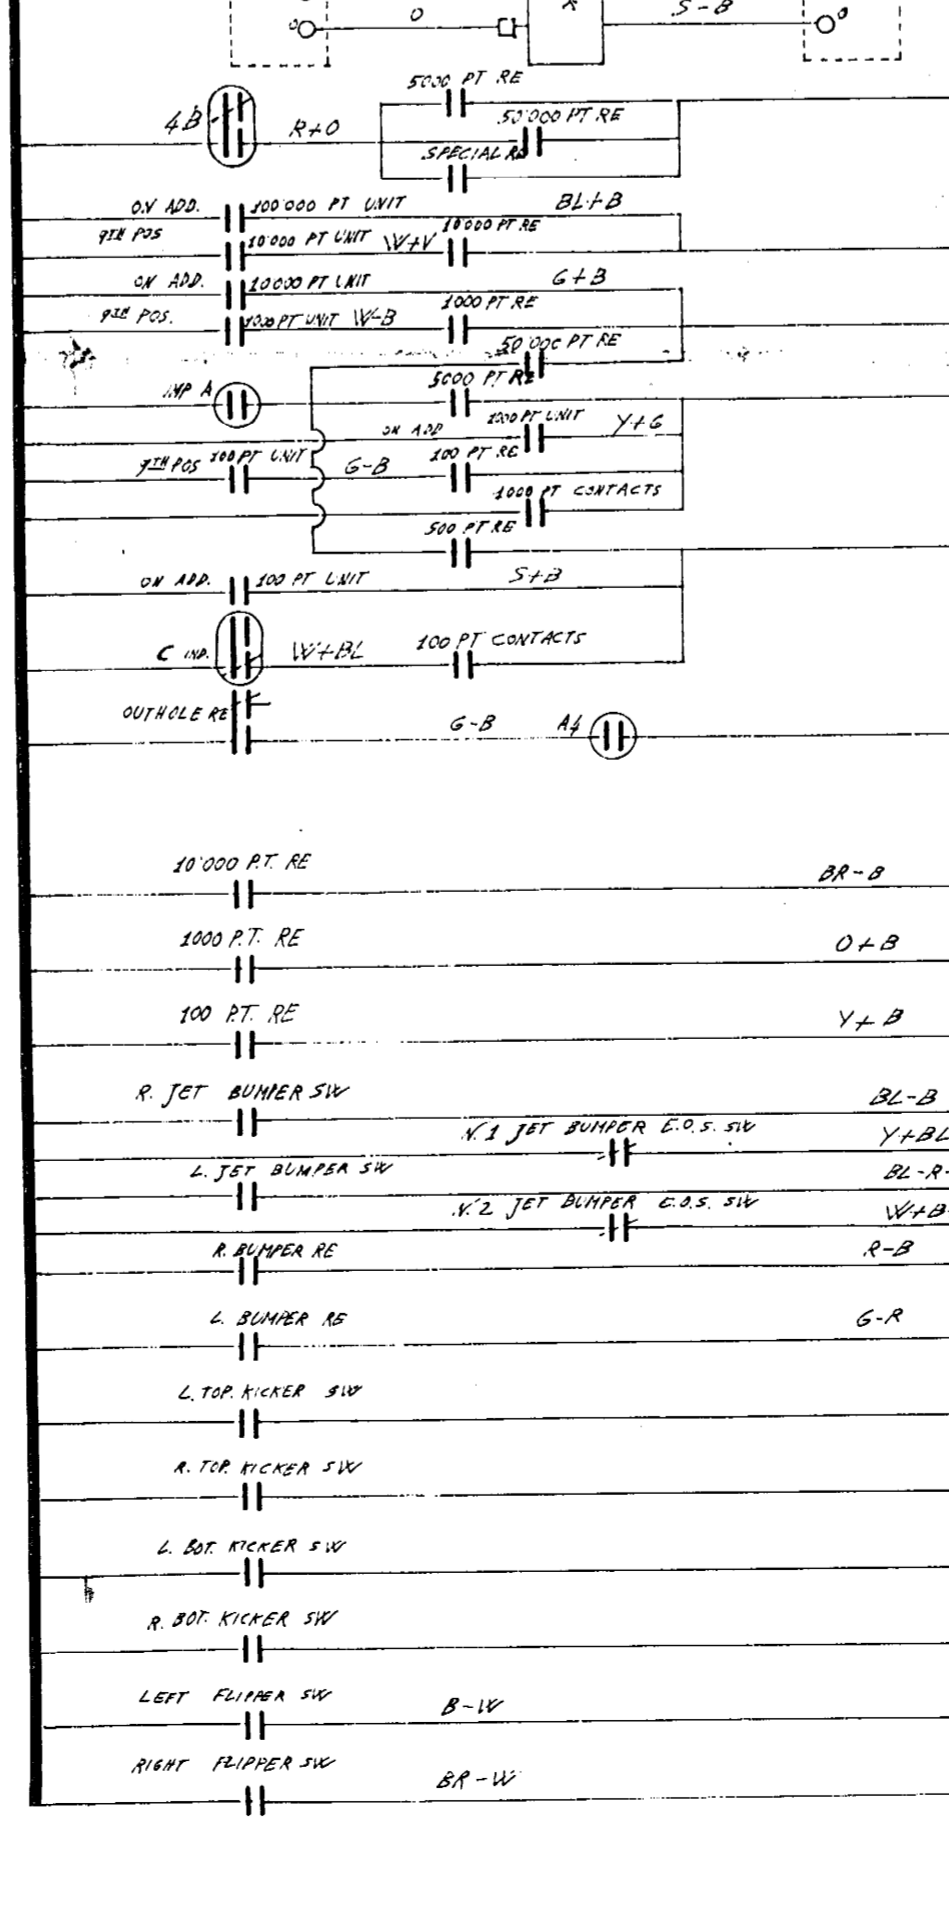 O
S-B
5000 PT RE
4B
R+O
50'000 PT RE
SPECIAL RE
ON ADD.
100'000 PT UNIT
BL+B
9TH POS
10'000 PT UNIT
W+V
10'000 PT RE
ON ADD.
10'000 PT UNIT
G+B
9TH POS.
1000 PT UNIT
W-B
1000 PT RE
50'000 PT RE
IMP A
5000 PT RE
ON ADD
1000 PT UNIT
Y+G
9TH POS
100 PT UNIT
G-B
100 PT RE
1000 PT CONTACTS
500 PT RE
ON ADD.
100 PT UNIT
S+B
C IMP.
W+BL
100 PT CONTACTS
OUTHOLE RE
G-B
A4
10'000 P.T. RE
BR-B
1000 P.T. RE
O+B
100 P.T. RE
Y+B
R. JET BUMPER SW
BL-B
N.1 JET BUMPER E.O.S. SW
Y+BL
L. JET BUMPER SW
BL-R-
N.2 JET BUMPER E.O.S. SW
W+B-
R. BUMPER RE
R-B
L. BUMPER RE
G-R
L. TOP. KICKER SW
R. TOP. KICKER SW
L. BOT. KICKER SW
R. BOT. KICKER SW
LEFT FLIPPER SW
B-W
RIGHT FLIPPER SW
BR-W